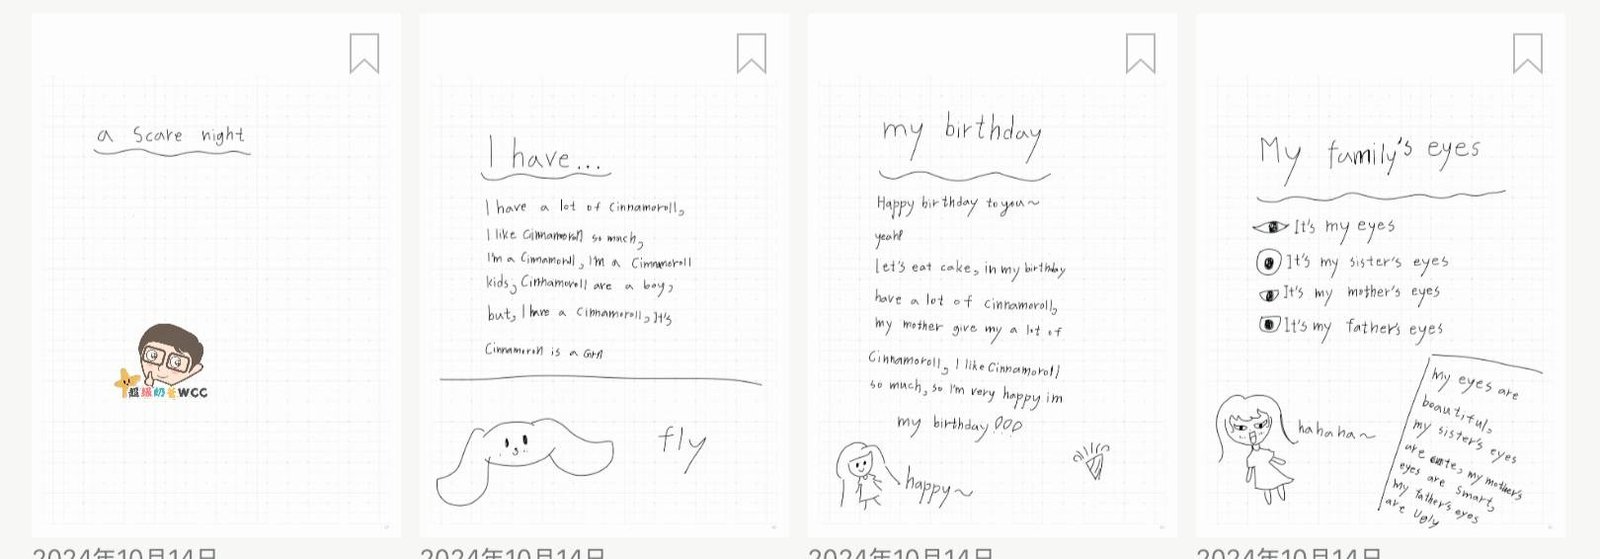 a Scare night
超级奶爸WCC
2024年10月14日
I have...
I have a lot of Cinnamoroll,
I like Cinnamoroll so much,
I'm a Cinnamoroll, I'm a Cinnamoroll
kids, Cinnamoroll are a boy,
but, I have a Cinnamoroll, It's
Cinnamoroll is a
fly
2024年10月14日
my birthday
Happy birthday to you~
yeah!
let's eat cake, in my birthday
have a lot of Cinnamoroll,
my mother give my a lot of
Cinnamoroll, I like Cinnamoroll
so much, so I'm very happy im
my birthday
happy~
2024年10月14日
My family's eyes
It's my eyes
It's my sister's eyes
It's my mother's eyes
It's my father's eyes
hahaha~
My eyes are
beautiful,
my sister's eyes
are cute, my mother's
eyes are smart,
my father's eyes
are Ugly
2024年10月14日